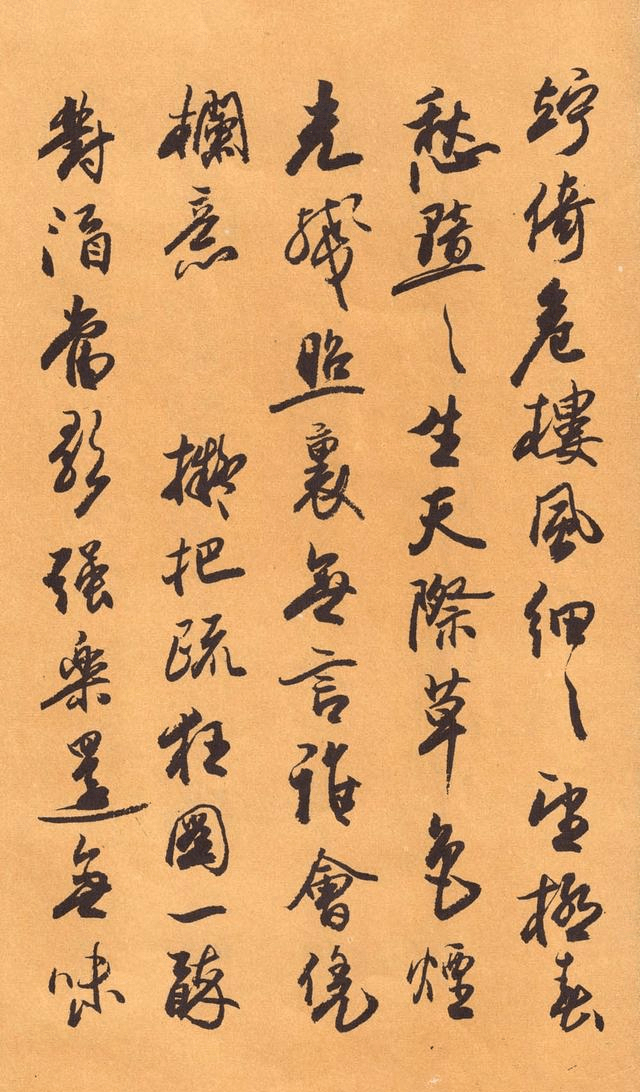 竚倚危樓風細〻望極春
愁黯〻生天際草色煙
光殘照裏無言誰會凭
欄意　擬把疏狂圖一醉
對酒當歌强樂還無味